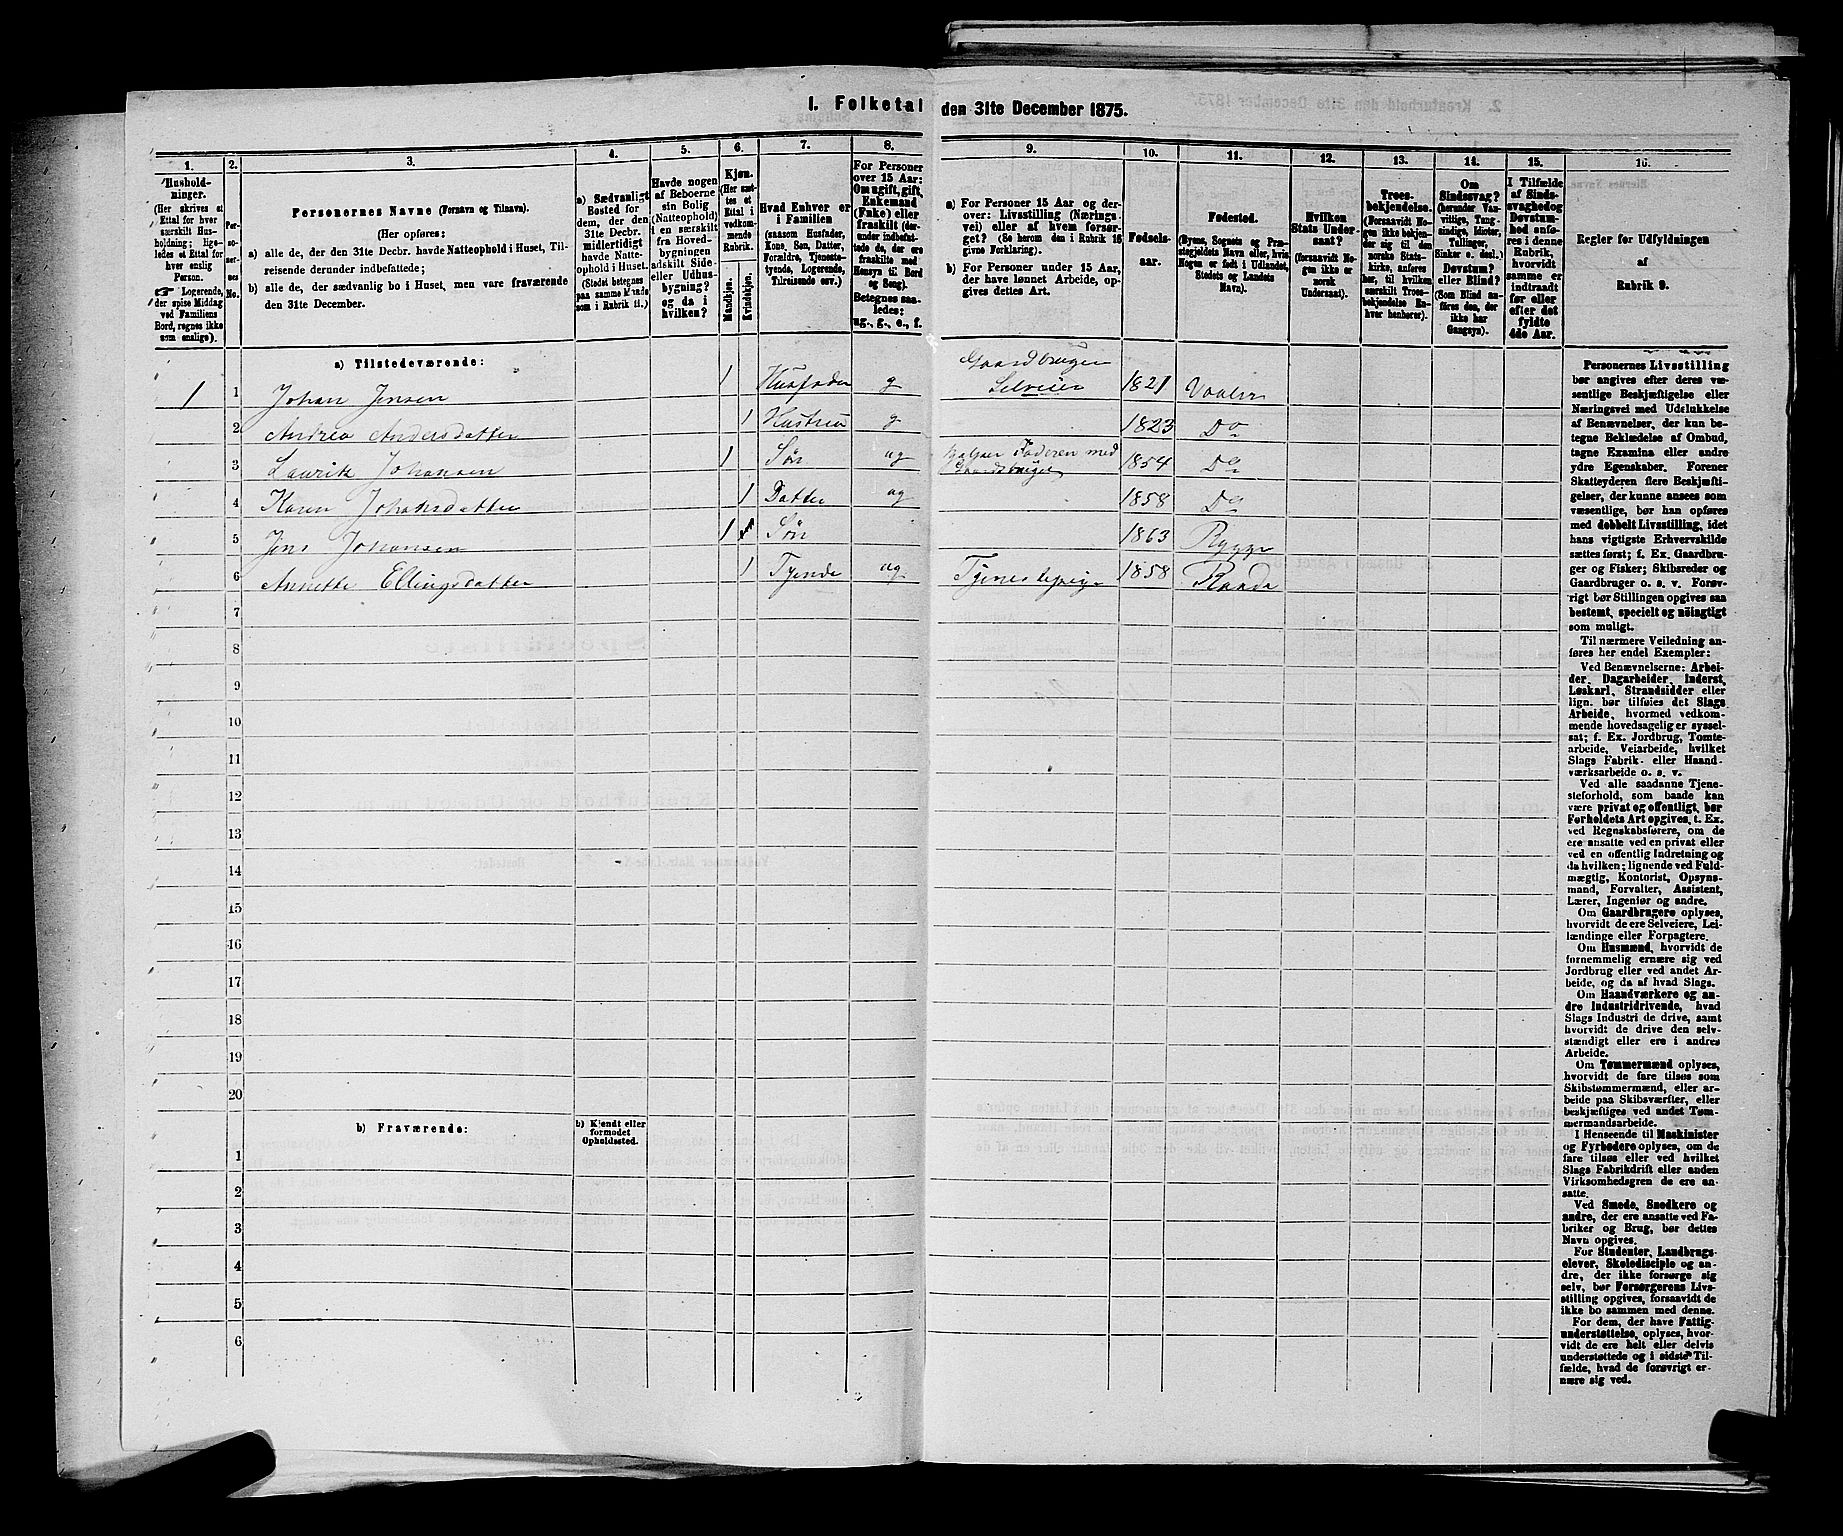 1. Folketal den 31te December 1875.
1. 2. 3. 4. 5. 6. 7. 8. 9. 10. 11. 12. 13. 14. 15. 16.
Husholdninger.
(Her skrives et
Ettal for hver
særskilt Husholdning;
ligeledes et Ettal for
hver enslig
Person.
☞ Logerende,
der spise Middag
ved Familiens
Bord, regnes ikke
som enslige).
Personernes No.
Personernes Navne (Fornavn og Tilnavn).
(Her opføres:
a) alle de, der den 31te Decbr. havde Natteophold i Huset, Tilreisende derunder indbefattede;
b) alle de, der sædvanlig bo i Huset, men vare fraværende
den 31te December.
a) Sædvanligt
Bosted for
dem, der den
31te Decbr.
midlertidigt
havde Natteophold i Huset.
(Stedet betegnes
paa samme Maade
som i Rubrik 11.)
Havde nogen
af Beboerne
sin Bolig
(Natteophold)
i en særskilt
fra Hovedbygningen
adskilt Side- eller Udhusbygning?
og da i
hvilken?
Kjøn.
(Her sættes et
Ettal i
vedkommende
Rubrik.
Mandkjøn.
Kvindekjøn.
Hvad Enhver er
i Familien
(saasom Husfader,
Kone, Søn, Datter,
Forældre, Tjenestetyende, Logerende,
Tilreisende osv.)
For Personer
over 15 Aar:
Om ugift, gift,
Enkemand
(Enke) eller
fraskilt (derunder indbefattede de, der ere
fraskilte med
Hensyn til Bord
og Seng).
Betegnes saaledes:
ug., g., e., f.
a) For Personer 15 Aar og derover: Livsstilling (Næringsvei) eller af hvem forsørget? (Se herom den i Rubrik 16
givne Forklaring).
b) For Personer under 15 Aar,
der have lønnet Arbeide, opgives dettes Art.
Fødselsaar.
Fødested.
(Byens, Sognets og Præstegjeldets Navn eller, hvis
Nogen er født i Udlandet,
Stedets og Landets
Navn).
Hvilken
Stats Undersaat?
(forsaavidt Nogen ikke er
norsk
Undersaat).
Troesbekjendelse.
(Forsaavidt Nogen ikke bekjender sig til den
norske Statskirke, anføres
her, til hvilken
særskilt Troesbekjendelse Enhver henhører).
Om
Sindssvag?
(herunder Vanvittige, Tungsindige, Idioter,
Tullinger,
Sinker o. desl.)
Døvstum?
eller Blind?
(Som Blind anføres den, der
ikke har
Gangsyn).
I Tilfælde
af Sindssvaghed og
Døvstumhed anføres i denne
Rubrik,
hvorvidt
samme er
indtraadt
før eller
efter det
fyldte
4de Aar.
Regler for Udfyldningen
af
Rubrik 9.
a) Tilstedeværende:
1 1 Johan Jensen 1 Husfader g Gaardbruger
Selveier 1821 Vaaler
2 Andrea Andersdatter 1 Hustru g 1823 Do
3 Laurits Johansen 1 Søn ug Hjelper Faderen med
Gaardsbruget 1854 Do
4 Karen Johansdatter 1 Datter ug 1858 Do
5 Jens Johansen 1 Søn 1863 Rygge
6 Annette Ellingsdatter 1 Tyende ug Tjenestepige 1858 Raade
7
8
9
10
11
12
13
14
15
16
17
18
19
20
b) Fraværende:
b) Kjendt eller
formodet
Opholdssted.
1
2
3
4
5
6
Personernes Livsstilling
bør angives efter deres væsentlige Beskjæftigelse eller
Næringsvei med Udelukkelse
af Benævnelser, der kun betegne Beklædelse af Ombud,
tagne Examina eller andre
ydre Egenskaber. Forener
Skatteyderen flere Beskjæftigelser, der kunne ansees som
væsentlige, bør han opføres
med dobbelt Livsstilling, idet
hans vigtigste Erhvervskilde
sættes først; f. Ex. Gaardbruger og Fisker; Skibsreder og
Gaardbruger o. s. v. Forøvrigt bør Stillingen opgives saa
bestemt, specielt og nöiagtigt
som muligt.
Til nærmere Veiledning anføres her endel Exempler:
Ved Benævnelserne: Arbeider, Dagarbeider, Inderst,
Løskarl, Strandsidder eller
lign. bør tilføies det Slags
Arbeide, hvormed vedkommende hovedsagelig er sysselsat; f. Ex. Jordbrug, Tomtearbeide, Veiarbeide, hvilket
Slags Fabrik- eller Haandværksarbeide o. s. v.
Ved alle saadanne Tjenesteforhold, som baade kan
være privat og offentligt, bør
Forholdets Art opgives, t. Ex.
ved Regnskabsførere, om de
ere ansatte ved en privat eller
ved en offentlig Indretning og
da hvilken; lignende ved Fuldmægtig, Kontorist, Opsynsmand, Forvalter, Assistent,
Lærer, Ingeniør og andre.
Om Gaardbrugere oplyses,
hvorvidt de ere Selveiere, Leilændinge eller Forpagtere.
Om Husmænd, hvorvidt de
fornemmelig ernære sig ved
Jordbrug eller ved andet Arbeide, og da af hvad Slags.
Om Haandværkere og andre Industridrivende, hvad
Slags Industri de drive, samt
hvorvidt de drive den selvstændigt eller ere i andres
Arbeide.
Om Tømmermænd oplyses,
hvorvidt de fare tilsøs som
Skibstømmermænd, eller arbeide paa Skibsværfter, eller
beskjæftiges ved andet Tømmermandsarbeide.
I Henseende til Maskinister
og Fyrbødere oplyses, om de
fare tilsøs eller ved hvilket
Slags Fabrikdrift eller anden
Virksomhedsgren de ere ansatte.
Ved Smede, Snedkere og
andre, der ere ansatte ved Fabriker og Brug, bør dettes
Navn opgives.
For Studenter, Landbrugselever, Skoledisciple og andre, der ikke forsørge sig
selv, bør Forsørgerens Livsstilling opgives, forsaavidt de
ikke bo sammen med denne.
For dem, der have Fattigunderstøttelse, oplyses, hvorvidt de ere helt eller delvis
understøttede og i sidste Tilfælde, hvad de forøvrigt ernære sig ved.